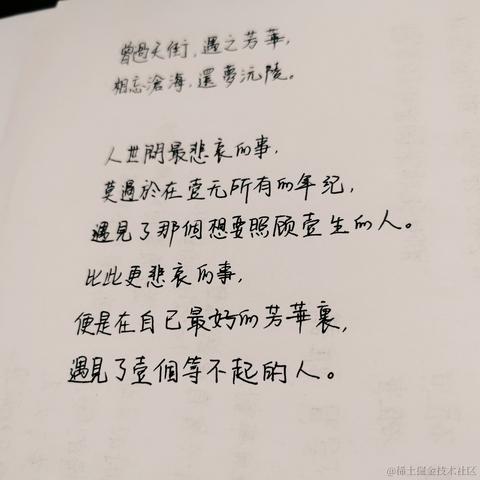 曾過天街，遇之芳華，
相忘滄海，還夢沅陵。
人世間最悲哀的事，
莫過於在壹无所有的年纪，
遇見了那個想要照顾壹生的人。
比此更悲哀的事，
便是在自己最好的芳華裏，
遇見了壹個等不起的人。
@稀土掘金技术社区